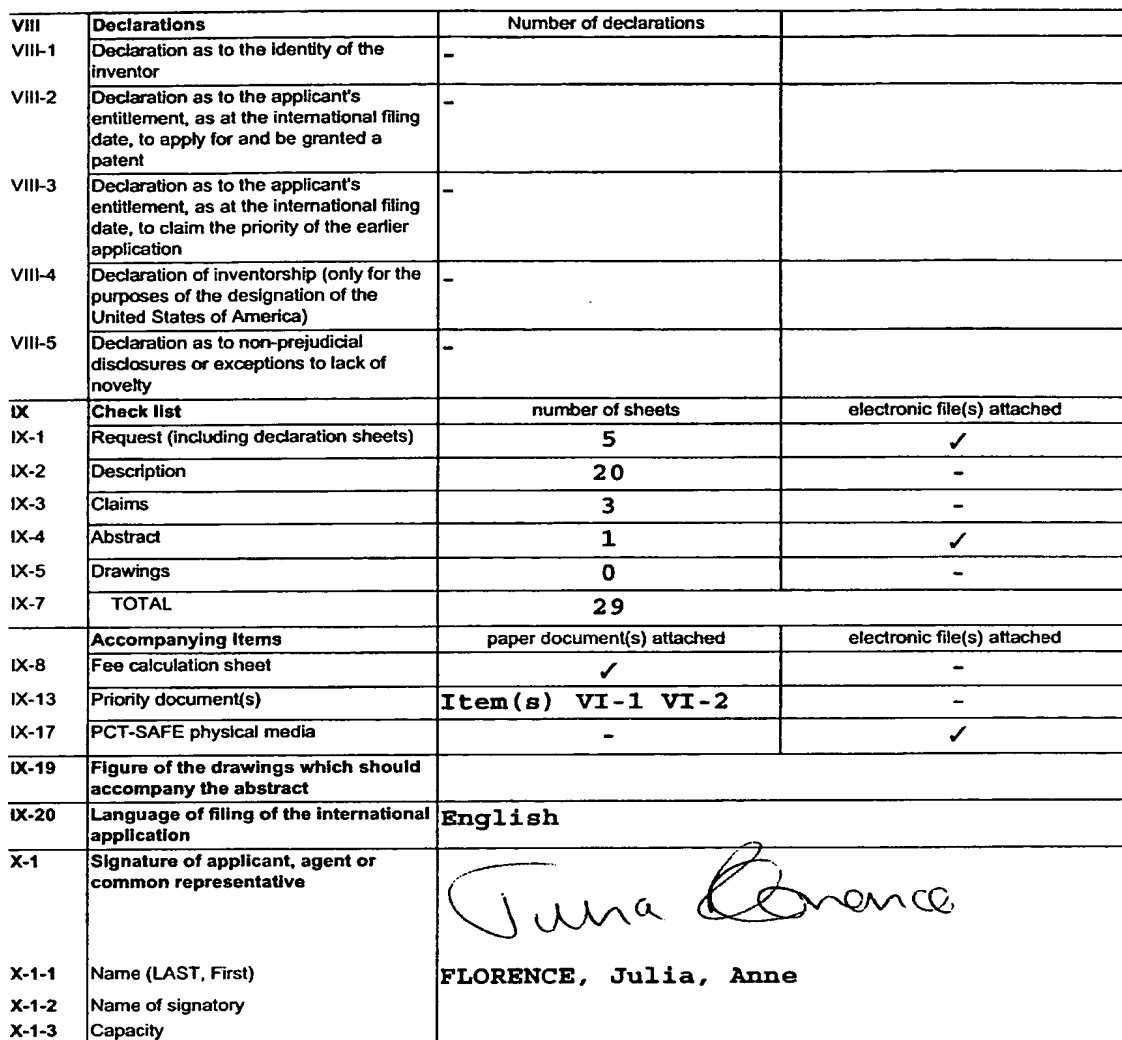 VIII Declarations Number of declarations
VIII-1 Declaration as to the identity of the
inventor -
VIII-2 Declaration as to the applicant's
entitlement, as at the international filing
date, to apply for and be granted a
patent -
VIII-3 Declaration as to the applicant's
entitlement, as at the international filing
date, to claim the priority of the earlier
application -
VIII-4 Declaration of inventorship (only for the
purposes of the designation of the
United States of America) -
VIII-5 Declaration as to non-prejudicial
disclosures or exceptions to lack of
novelty -
IX Check list number of sheets electronic file(s) attached
IX-1 Request (including declaration sheets) 5 ✓
IX-2 Description 20 -
IX-3 Claims 3 -
IX-4 Abstract 1 ✓
IX-5 Drawings 0 -
IX-7 TOTAL 29
Accompanying Items paper document(s) attached electronic file(s) attached
IX-8 Fee calculation sheet ✓ -
IX-13 Priority document(s) Item(s) VI-1 VI-2 -
IX-17 PCT-SAFE physical media - ✓
IX-19 Figure of the drawings which should
accompany the abstract
IX-20 Language of filing of the international
application English
X-1 Signature of applicant, agent or
common representative
Julia Florence
X-1-1 Name (LAST, First) FLORENCE, Julia, Anne
X-1-2 Name of signatory
X-1-3 Capacity